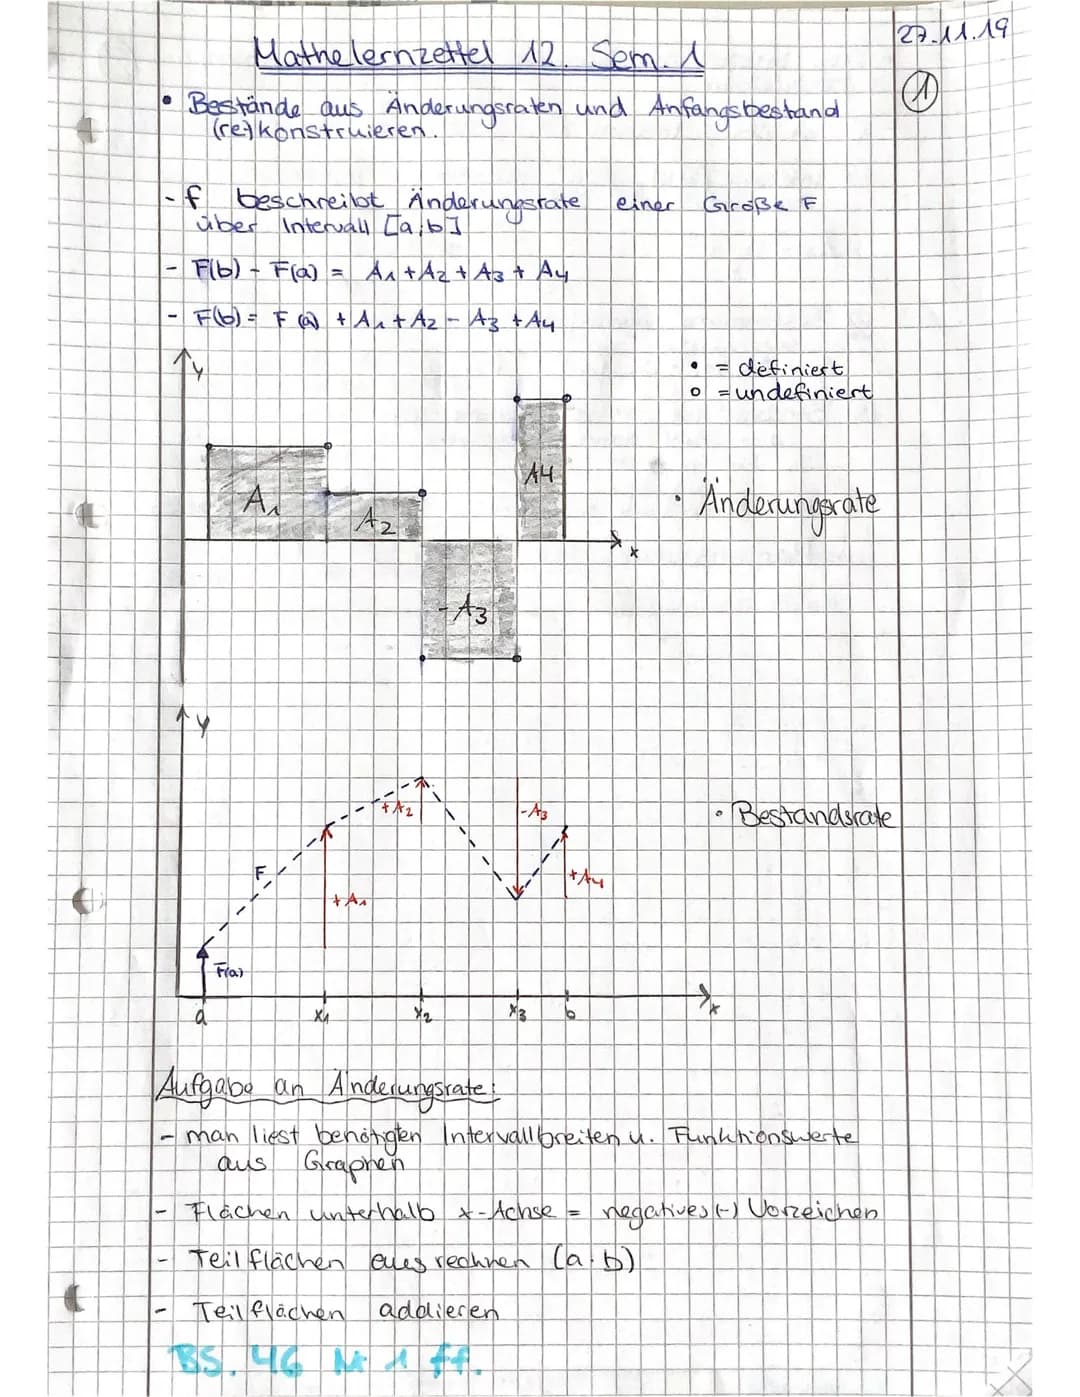 27.11.19
Mathelernzettel 12. Sem. 1
1
• Bestände aus Änderungsraten und Anfangsbestand
(re)konstruieren.
- f beschreibt Änderungsrate einer Größe F
über Intervall [a;b]
- F(b) - F(a) = A1 + A2 + A3 + A4
- F(b) = F(a) + A1 + A2 - A3 + A4
y
• = definiert
o = undefiniert
A4
A1
A2
• Änderungsrate
x
-A3
y
+A2
-A3
• Bestandsrate
F
+A4
+A1
F(a)
x
a x1 x2 x3 b
Aufgabe an Änderungsrate:
- man liest benötigten Intervallbreiten u. Funktionswerte
aus Graphen
- Flächen unterhalb x-Achse = negatives (-) Vorzeichen
- Teilflächen ausrechnen (a·b)
- Teilflächen addieren
BS. 46 N 1 ff.